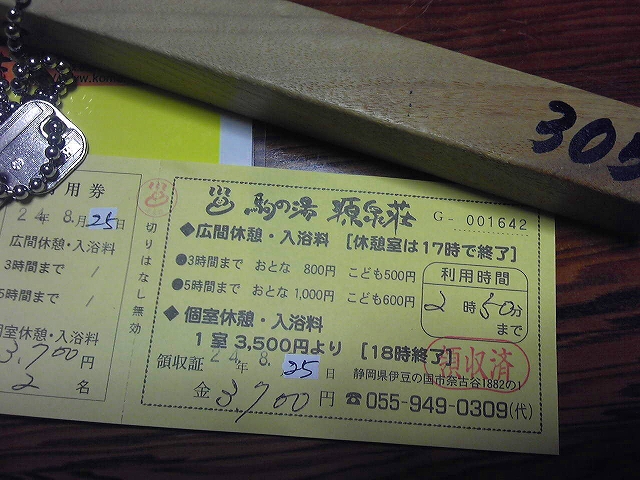 305
用券
24年8月25日
広間休憩・入浴料
3時間まで /
5時間まで /
個室休憩・入浴料
3,700円
2名
切りはなし無効
駒の湯 源泉荘 G- 001642
◆広間休憩・入浴料 [休憩室は17時で終了]
●3時間まで おとな 800円 こども500円
●5時間まで おとな1,000円 こども600円
利用時間
2時50分
まで
◆個室休憩・入浴料
1室 3,500円より [18時終了]
領収済
領収証 24年 8. 25日
静岡県伊豆の国市奈古谷1882の1
金 3,700円 ☎055-949-0309(代)